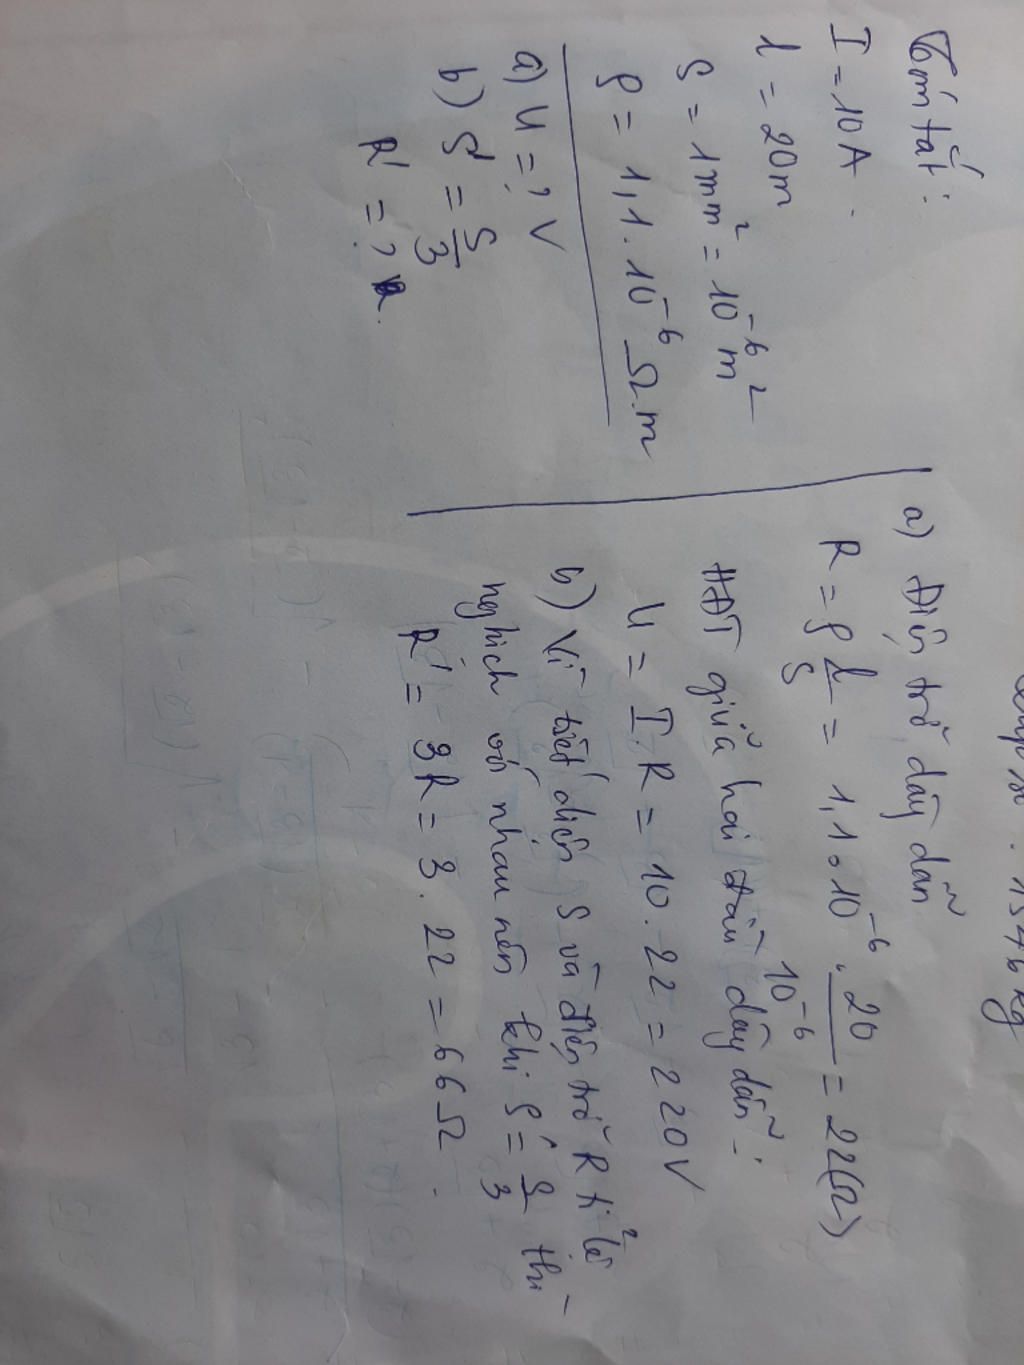 Tóm tắt:
I = 10A.
l = 20m
S = 1mm² = 10⁻⁶ m²
ρ = 1,1.10⁻⁶ Ω.m
a) U = ? V
b) S' = S/3
R' = ?
a) Điện trở dây dẫn
R = ρ l/S = 1,1.10⁻⁶ . 20/10⁻⁶ = 22(Ω)
HĐT giữa hai đầu dây dẫn:
U = I.R = 10.22 = 220V
b) Vì tiết diện S và điện trở R tỉ lệ
nghịch với nhau nên khi S' = S/3 thì
R' = 3R = 3.22 = 66Ω.
kg